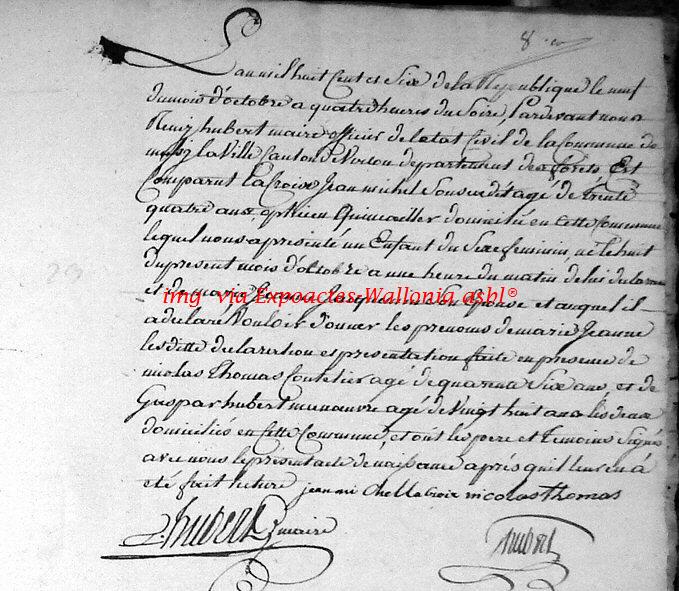 8.
L'an mil huit Cent et Six de la Republique le neuf
du mois d'octobre a quatre heures du Soire Pardevant nous
henry hubert maire officier de l'etat Civil de la Commune de
mussy la Ville Canton de Virton departement des forêts, Est
Comparut La Croix Jean michel Sousdit agé de trente
quatre ans Quincailler domicilié en Cette Commune
lequel nous a presenté un Enfant du Sexe feminin, né le huit
du present mois d'octobre a une heure du matin de lui
et de marie Son Epouse et auquel il
a declaré Vouloir donner les prenoms de marie Jeanne
les ditte declaration et presentation faite en presence de
nicolas thomas Coutelier agé de quarente Six ans, et de
Gaspar hubert manœuvre agé de Vingt huit ans les deux
domiciliés en Cette Commune, et ont les pere et temoins Signé
avec nous le present acte de naissance après quil leur en à
eté fait lecture jean mi chel la Croix nicolas thomas
hubert maire
hubert
img via Expoactes-Wallonia asbl®
23